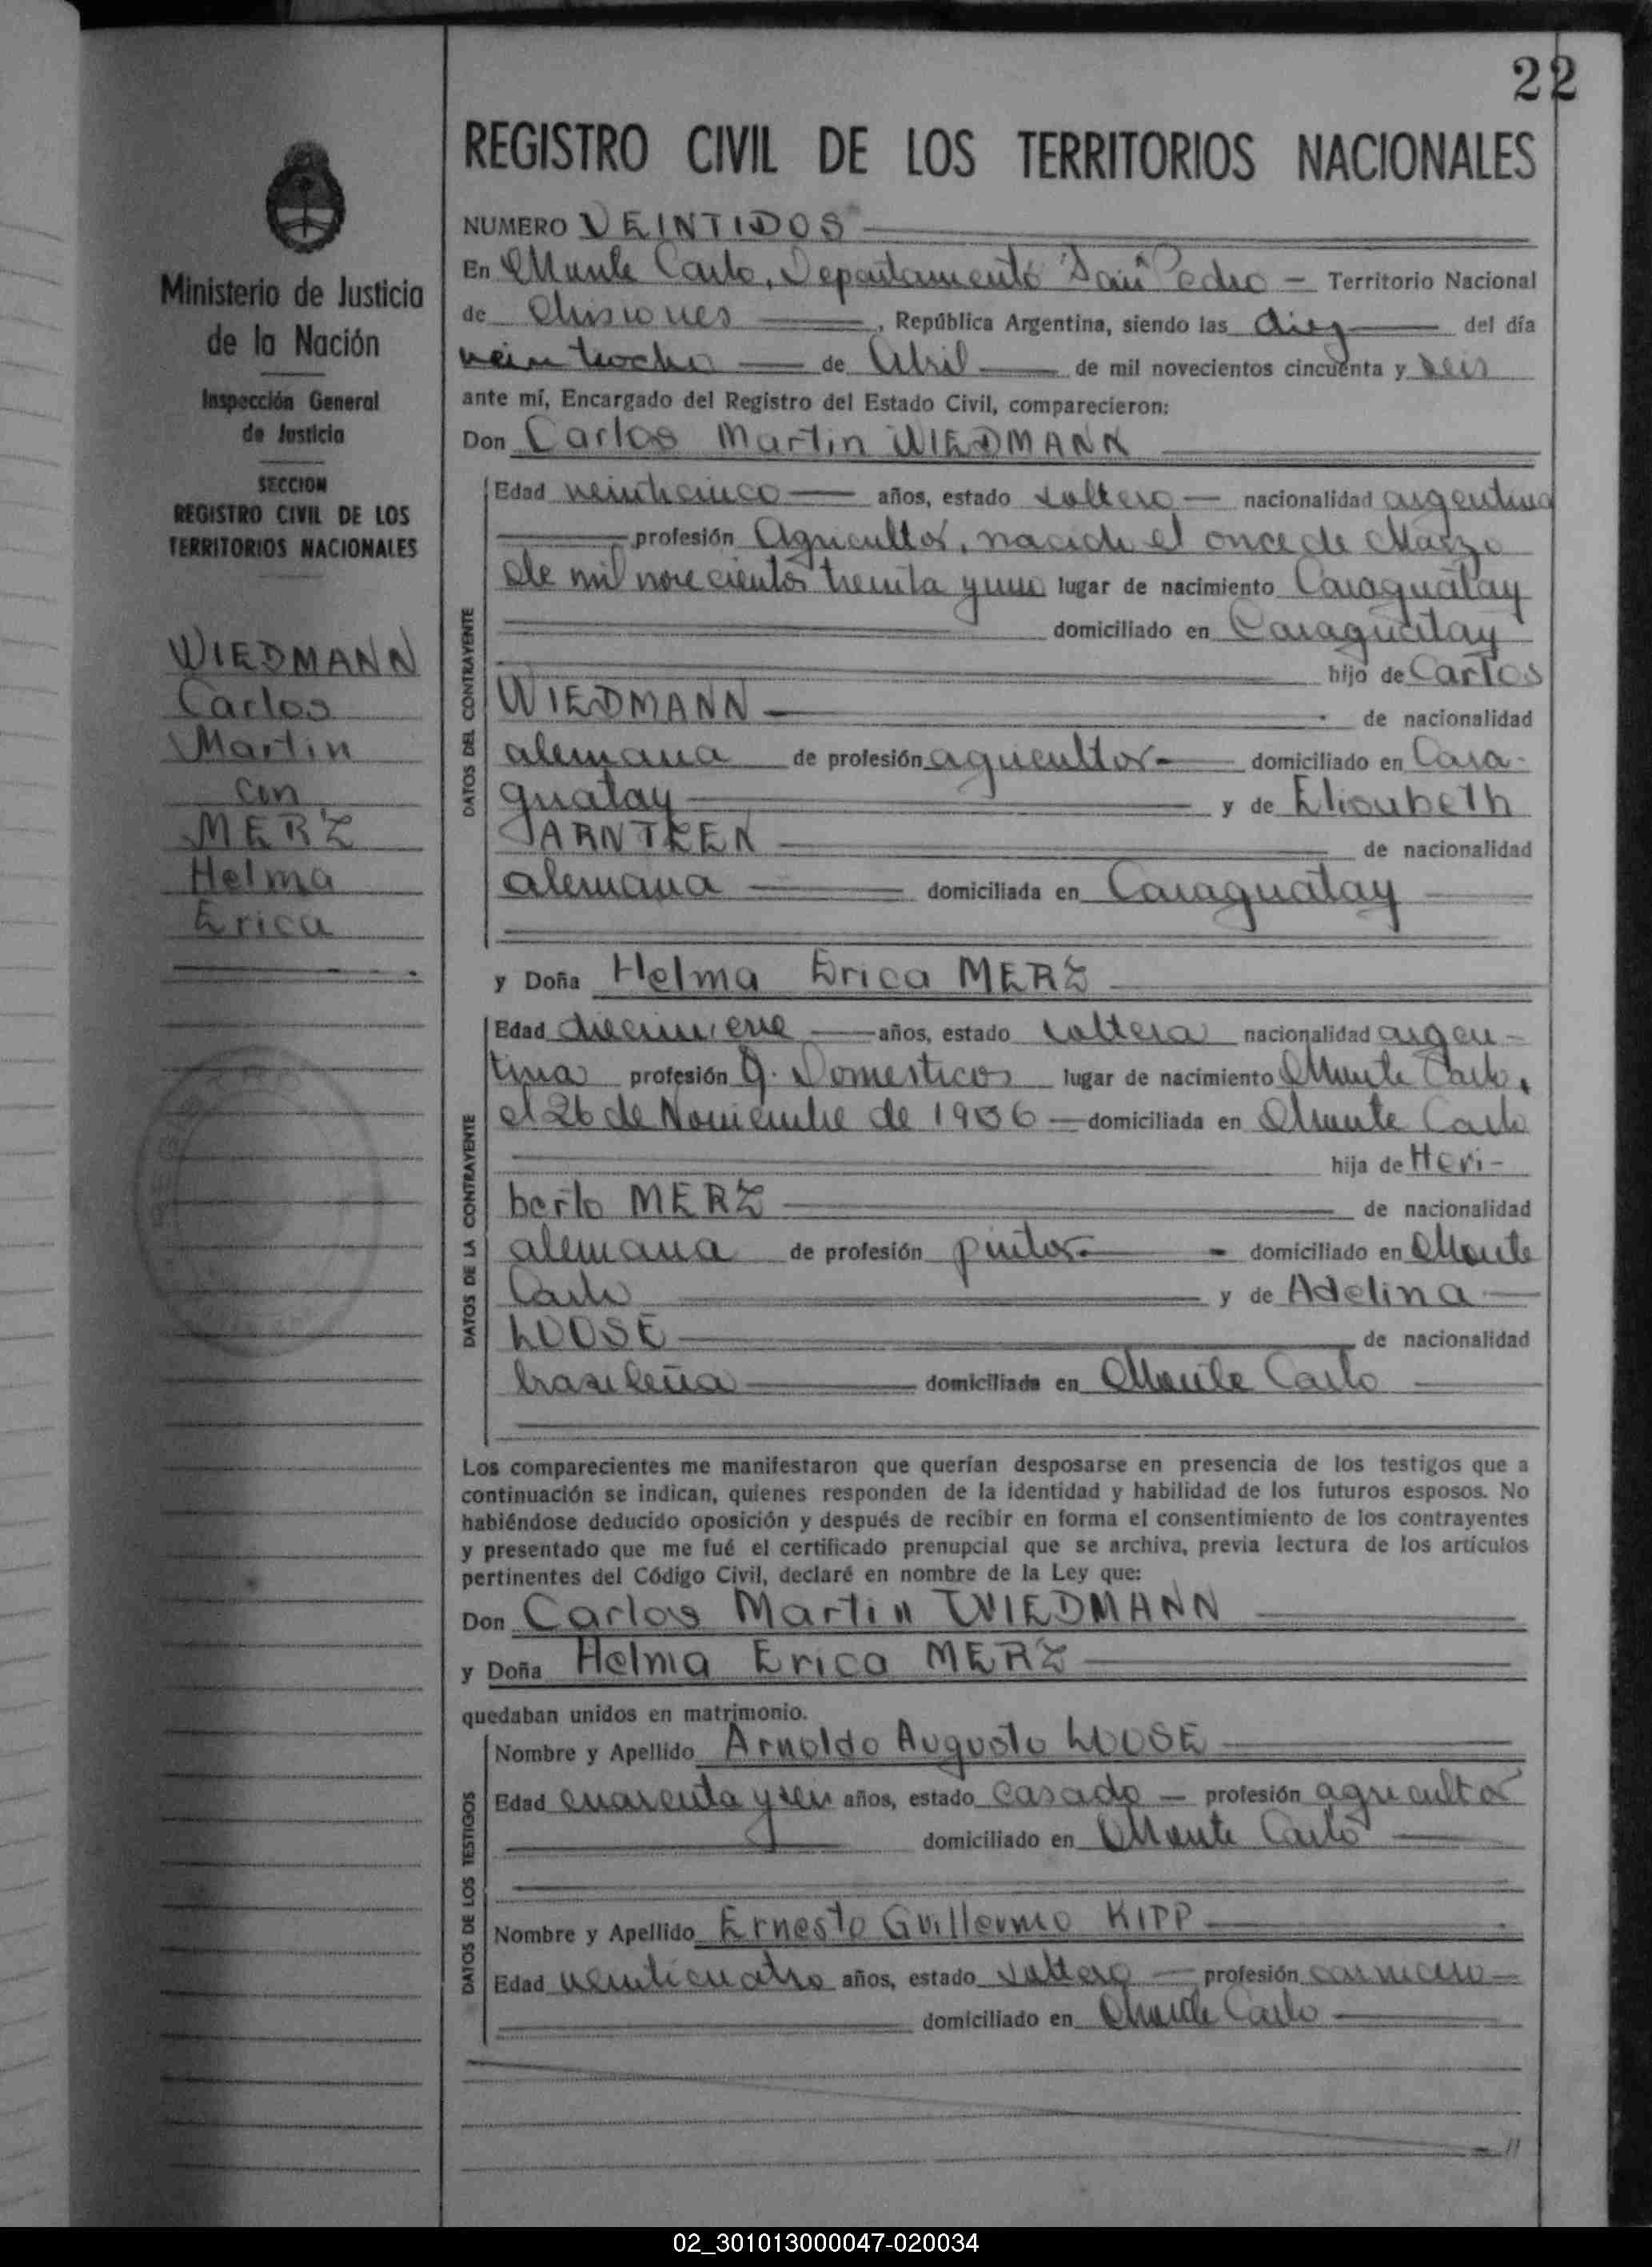 22
REGISTRO CIVIL DE LOS TERRITORIOS NACIONALES
Ministerio de Justicia
de la Nación
Inspección General
de Justicia
SECCION
REGISTRO CIVIL DE LOS
TERRITORIOS NACIONALES
WIEDMANN
Carlos
Martin
con
MERZ
Helma
Erica
NUMERO VEINTIDOS
En Monte Carlo, Departamento San Pedro - Territorio Nacional
de Misiones, República Argentina, siendo las diez del día
veintiocho de Abril de mil novecientos cincuenta y seis
ante mí, Encargado del Registro del Estado Civil, comparecieron:
Don Carlos Martin WIEDMANN
DATOS DEL CONTRAYENTE
Edad veinticinco años, estado soltero - nacionalidad argentina
profesión Agricultor, nacido el once de Marzo
de mil novecientos treinta y uno lugar de nacimiento Caraguatay
domiciliado en Caraguatay
hijo de Carlos
WIEDMANN de nacionalidad
alemana de profesión agricultor domiciliado en Cara-
guatay y de Elisabeth
de nacionalidad
alemana domiciliada en Caraguatay
y Doña Helma Erica MERZ
DATOS DE LA CONTRAYENTE
Edad diecinueve años, estado soltera nacionalidad argen-
tina profesión Q. Domesticos lugar de nacimiento Monte Carlo,
el 26 de Noviembre de 1936 domiciliada en Monte Carlo
hija de Heri-
berto MERZ de nacionalidad
alemana de profesión pintor domiciliado en Monte
Carlo y de Adelina
LOOSE de nacionalidad
brasileña domiciliada en Monte Carlo
Los comparecientes me manifestaron que querían desposarse en presencia de los testigos que a
continuación se indican, quienes responden de la identidad y habilidad de los futuros esposos. No
habiéndose deducido oposición y después de recibir en forma el consentimiento de los contrayentes
y presentado que me fué el certificado prenupcial que se archiva, previa lectura de los artículos
pertinentes del Código Civil, declaré en nombre de la Ley que:
Don Carlos Martin WIEDMANN
y Doña Helma Erica MERZ
quedaban unidos en matrimonio.
DATOS DE LOS TESTIGOS
Nombre y Apellido Arnoldo Augusto LOOSE
Edad cuarenta y seis años, estado casado - profesión agricultor
domiciliado en Monte Carlo
Nombre y Apellido Ernesto Guillermo KIPP
Edad veinticuatro años, estado soltero - profesión carnicero
domiciliado en Monte Carlo
02_301013000047-020034